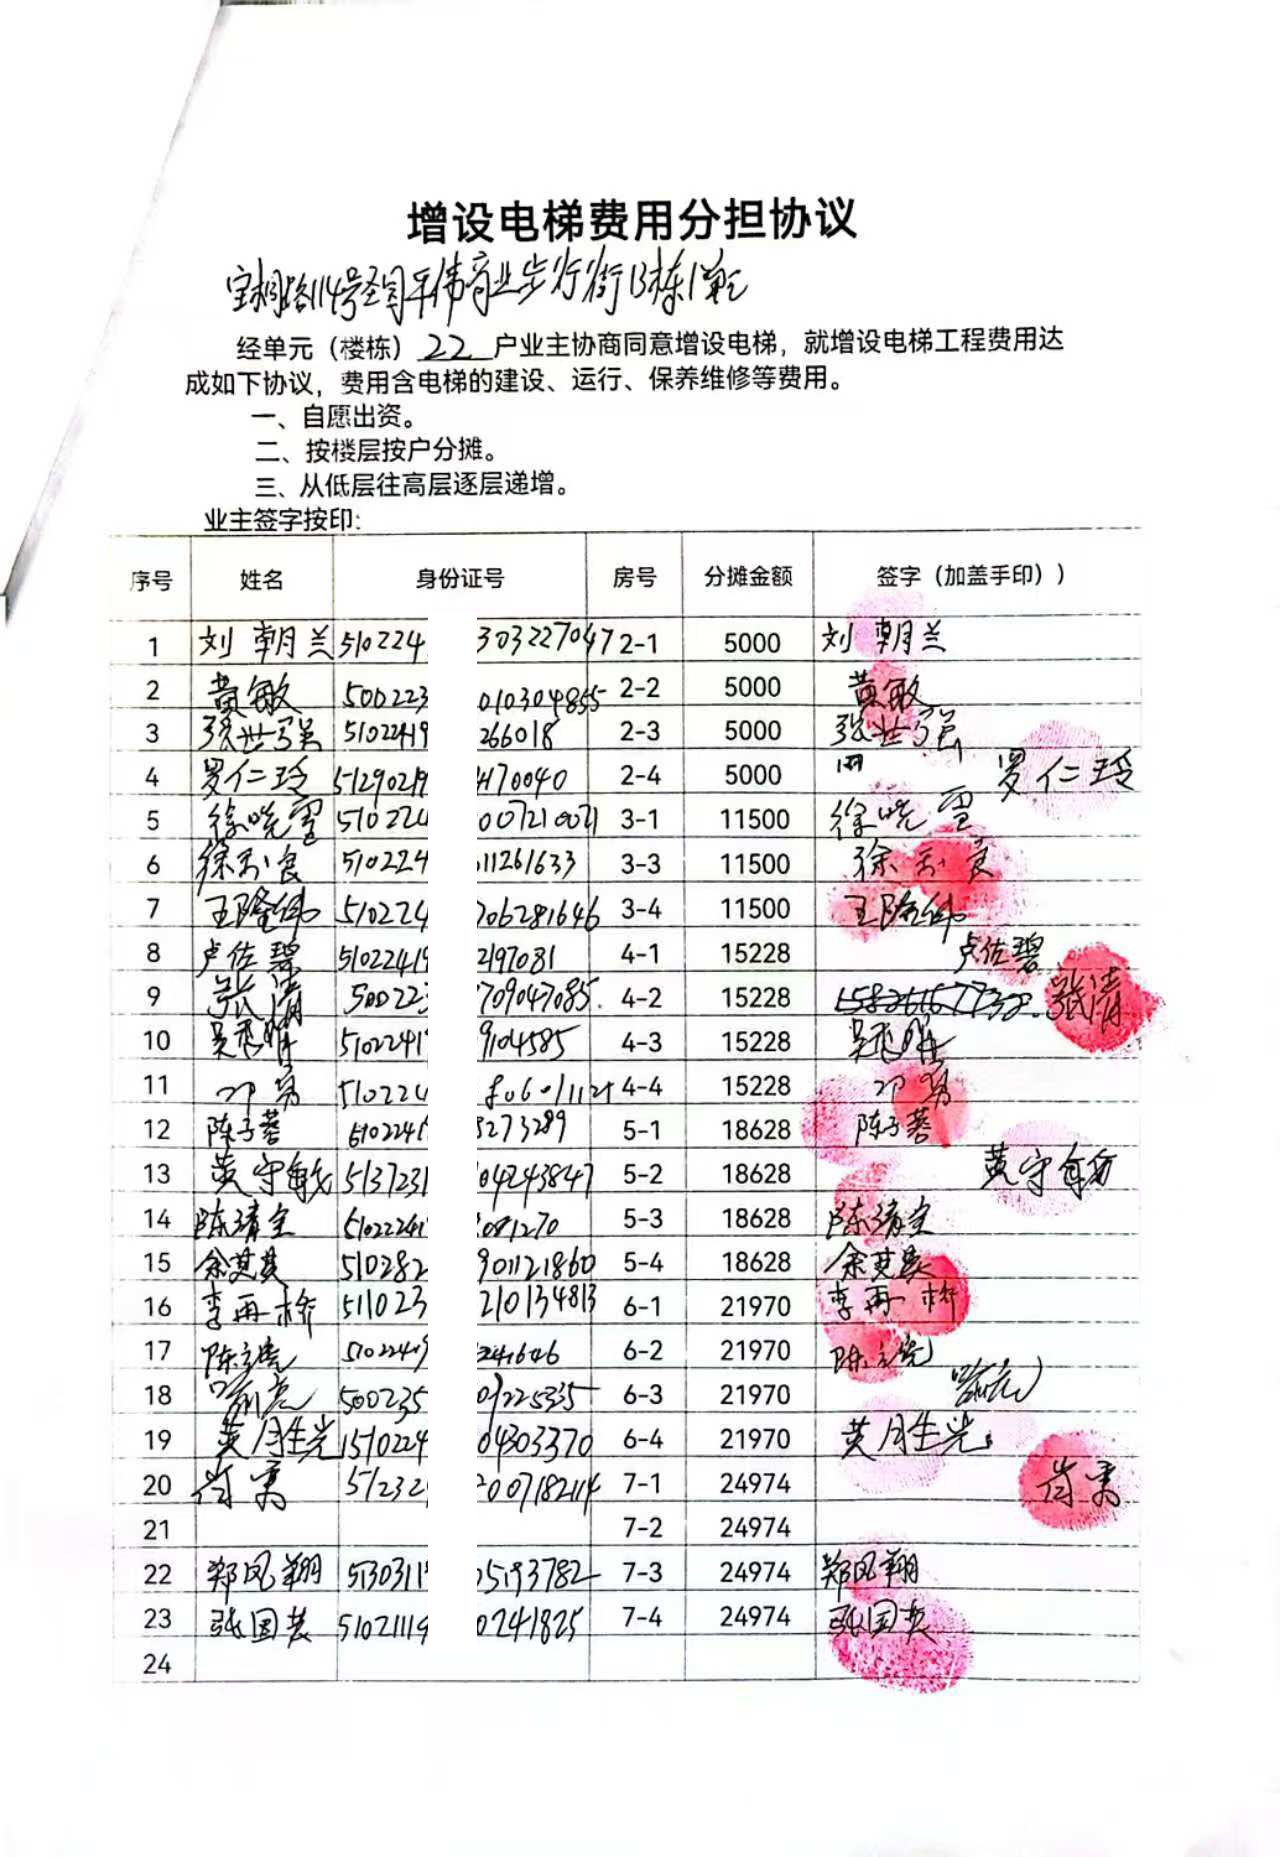 增设电梯费用分担协议
宝桐路114号圣司平伟商业步行街B栋1单元
经单元（楼栋）22户业主协商同意增设电梯，就增设电梯工程费用达
成如下协议，费用含电梯的建设、运行、保养维修等费用。
一、自愿出资。
二、按楼层按户分摊。
三、从低层往高层逐层递增。
业主签字按印:
序号 姓名 身份证号 房号 分摊金额 签字（加盖手印））
1 刘朝兰 510224 303227047 2-1 5000 刘朝兰
2 黄敏 500223 010304855 2-2 5000 黄敏
3 张世强 51022419 266018 2-3 5000 张世强
4 罗仁玲 51290219 4170040 2-4 5000 罗仁玲
5 徐晓雪 510224 007210021 3-1 11500 徐晓雪
6 510224 011261633 3-3 11500
7 王隆纬 510224 706281646 3-4 11500 王隆纬
8 卢佐碧 51022419 2197081 4-1 15228 卢佐碧
9 张清 500223 709047085. 4-2 15228 张清
10 5102241 9104585 4-3 15228
11 邓勇 510224 4-4 15228 邓勇
12 陈子蓉 5102241 3273289 5-1 18628 陈子蓉
13 黄守敏 5137231 04243847 5-2 18628 黄守敏
14 陈清宝 5102241 081270 5-3 18628 陈清宝
15 余英英 510282 901121860 5-4 18628 余英英
16 李再桥 511023 210134813 6-1 21970 李再桥
17 51022419 241646 6-2 21970
18 500235 09225335 6-3 21970
19 黄月胜 510224 04303370 6-4 21970 黄月胜
20 51232 2007182114 7-1 24974
21 7-2 24974
22 郑凤翔 5130311 05193782 7-3 24974 郑凤翔
23 张国英 51021119 0241825 7-4 24974 张国英
24